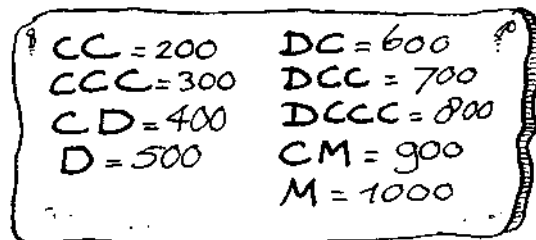 CC = 200
CCC = 300
CD = 400
D = 500
DC = 600
DCC = 700
DCCC = 800
CM = 900
M = 1000